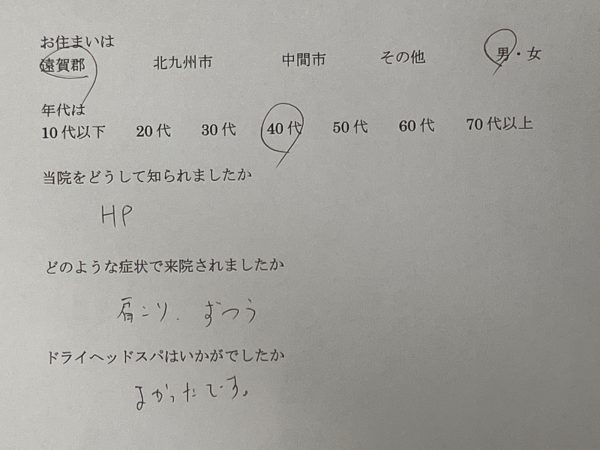 お住まいは
遠賀郡 北九州市 中間市 その他 男・女
年代は
10代以下 20代 30代 40代 50代 60代 70代以上
当院をどうして知られましたか
HP
どのような症状で来院されましたか
肩こり、ずつう
ドライヘッドスパはいかがでしたか
よかったです。